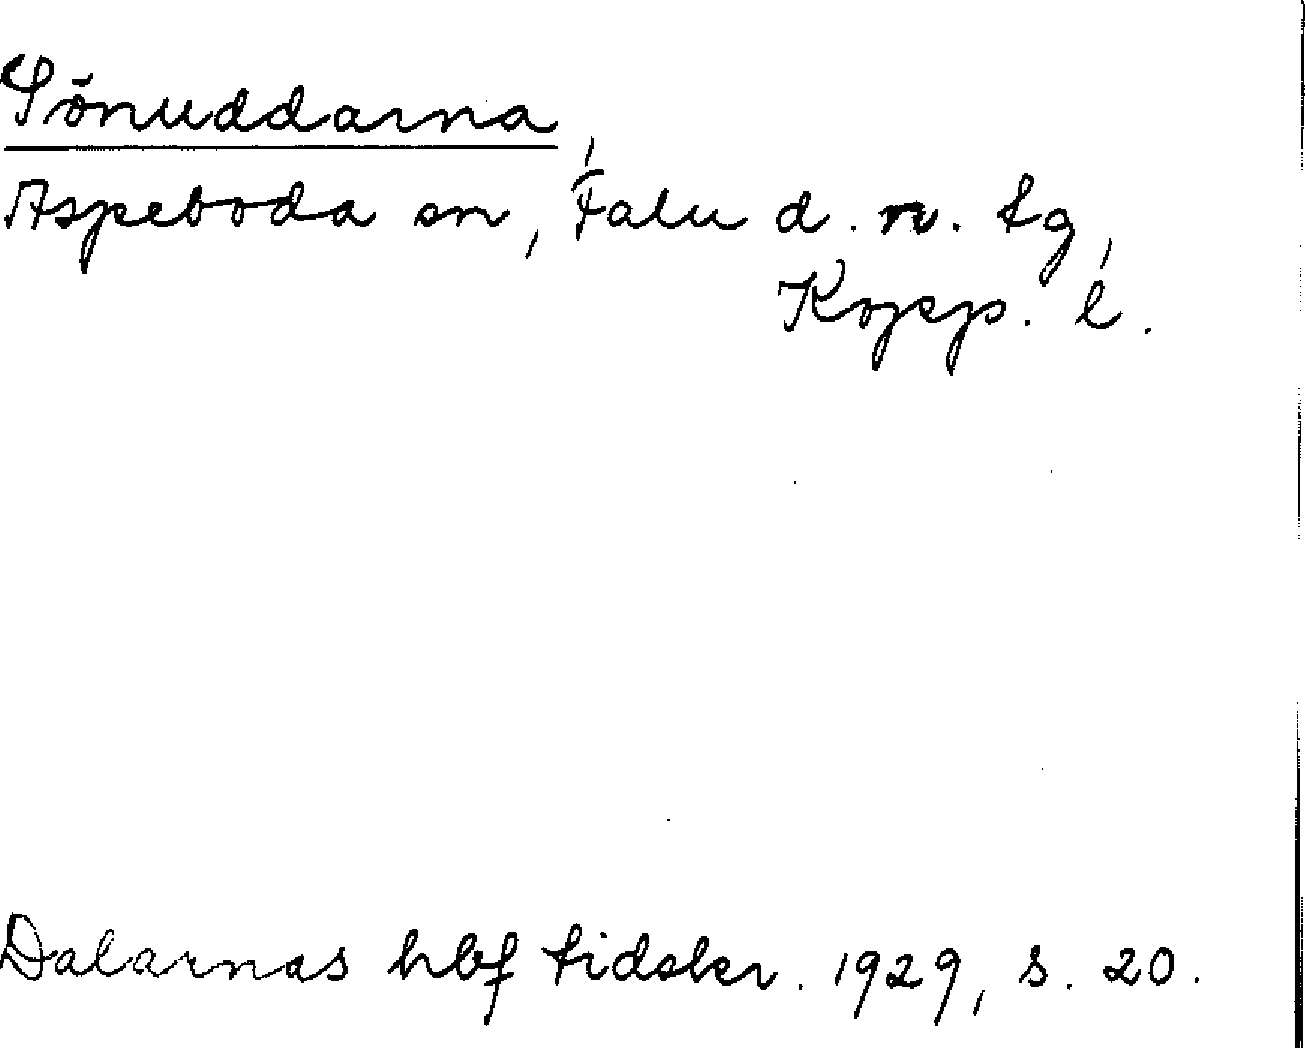 Sönuddarna,
Aspeboda sn, Falu d. n. tg,
Kopp. l.
Dalarnas hbf tidskr. 1929, s. 20.